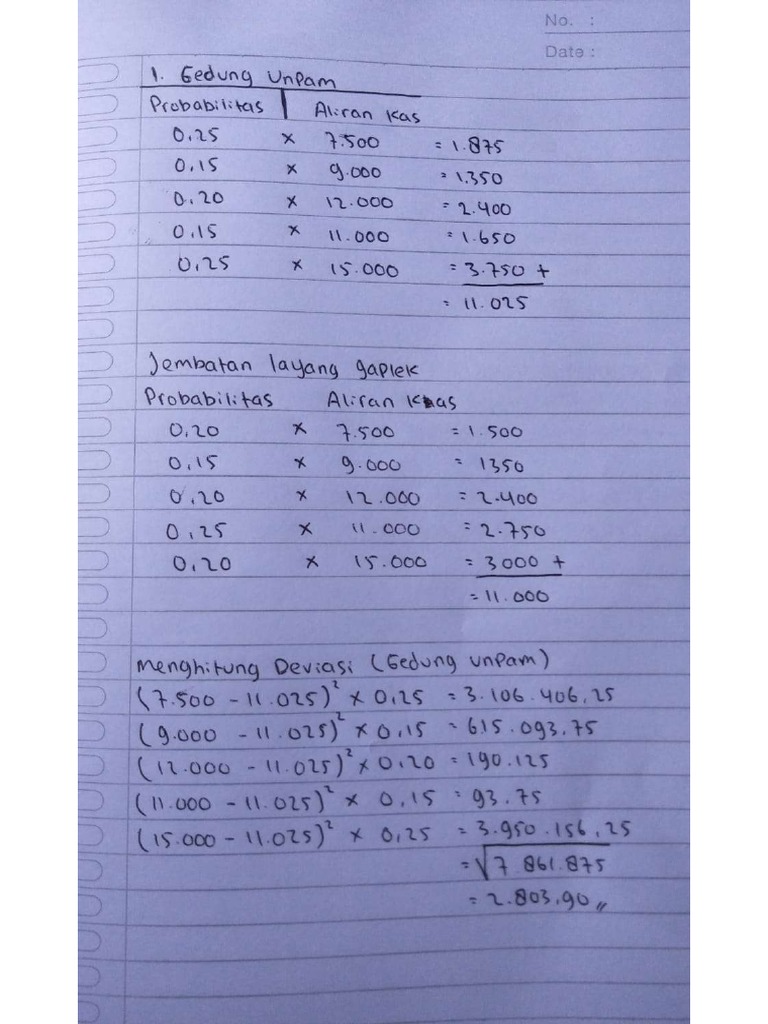 No. :
Date :
1. Gedung Unpam
Probabilitas | Aliran Kas
0,25 x 7.500 = 1.875
0,15 x 9.000 = 1.350
0,20 x 12.000 = 2.400
0,15 x 11.000 = 1.650
0,25 x 15.000 = 3.750 +
= 11.025
Jembatan layang gaplek
Probabilitas Aliran Kas
0,20 x 7.500 = 1.500
0,15 x 9.000 = 1350
0,20 x 12.000 = 2.400
0,25 x 11.000 = 2.750
0,20 x 15.000 = 3000 +
= 11.000
Menghitung Deviasi (Gedung unpam)
(7.500 - 11.025)² x 0,25 = 3.106.406,25
(9.000 - 11.025)² x 0,15 = 615.093,75
(12.000 - 11.025)² x 0,20 = 190.125
(11.000 - 11.025)² x 0,15 = 93.75
(15.000 - 11.025)² x 0,25 = 3.950.156,25
= √7.861.875
= 2.803,90 //